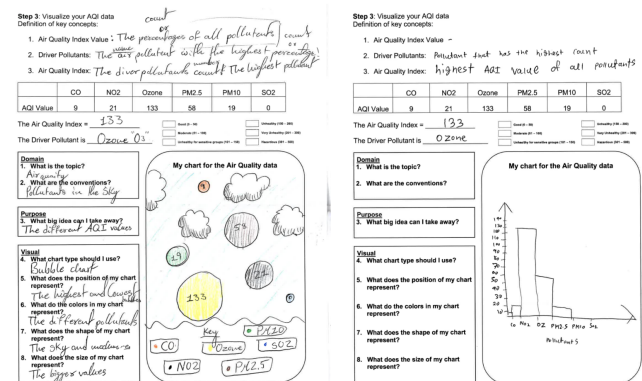 Step 3: Visualize your AQI data
Definition of key concepts:
count
or
1. Air Quality Index Value : The percentages of all pollutants
count
or
2. Driver Pollutants: The air pollutant with the highest percentages
name
number
3. Air Quality Index: The diver pollutants count/ The highest pollutant
CO NO2 Ozone PM2.5 PM10 SO2
AQI Value 9 21 133 58 19 0
The Air Quality Index = 133
The Driver Pollutant is Ozone "O3"
Good (0 – 50)
Moderate (51 – 100)
Unhealthy for sensitive groups (101 – 150)
Unhealthy (151 – 200)
Very Unhealthy (201 – 300)
Hazardous (301 – 500)
Domain
1. What is the topic?
Air quality
2. What are the conventions?
Pollutants in the sky
Purpose
3. What big idea can I take away?
The different AQI values
Visual
4. What chart type should I use?
Bubble chart
5. What does the position of my chart
represent?
The highest and lowest values
6. What do the colors in my chart
represent?
The different pollutants
7. What does the shape of my chart
represent?
The sky and
8. What does the size of my chart
represent?
The bigger values
My chart for the Air Quality data
9
58
19
21
133
0
Key
• PM10
• CO
• Ozone
• SO2
• NO2
• PM2.5
Step 3: Visualize your AQI data
Definition of key concepts:
1. Air Quality Index Value -
2. Driver Pollutants: Pollutant that has the highest count
3. Air Quality Index: highest AQI value of all pollutants
CO NO2 Ozone PM2.5 PM10 SO2
AQI Value 9 21 133 58 19 0
The Air Quality Index = 133
The Driver Pollutant is Ozone
Good (0 – 50)
Moderate (51 – 100)
Unhealthy for sensitive groups (101 – 150)
Unhealthy (151 – 200)
Very Unhealthy (201 – 300)
Hazardous (301 – 500)
Domain
1. What is the topic?
2. What are the conventions?
Purpose
3. What big idea can I take away?
Visual
4. What chart type should I use?
5. What does the position of my chart
represent?
6. What do the colors in my chart
represent?
7. What does the shape of my chart
represent?
8. What does the size of my chart
represent?
My chart for the Air Quality data
140
130
120
110
100
90
80
70
60
50
40
30
20
10
CO NO2 OZ PM2.5 PM10 SO2
Pollutants